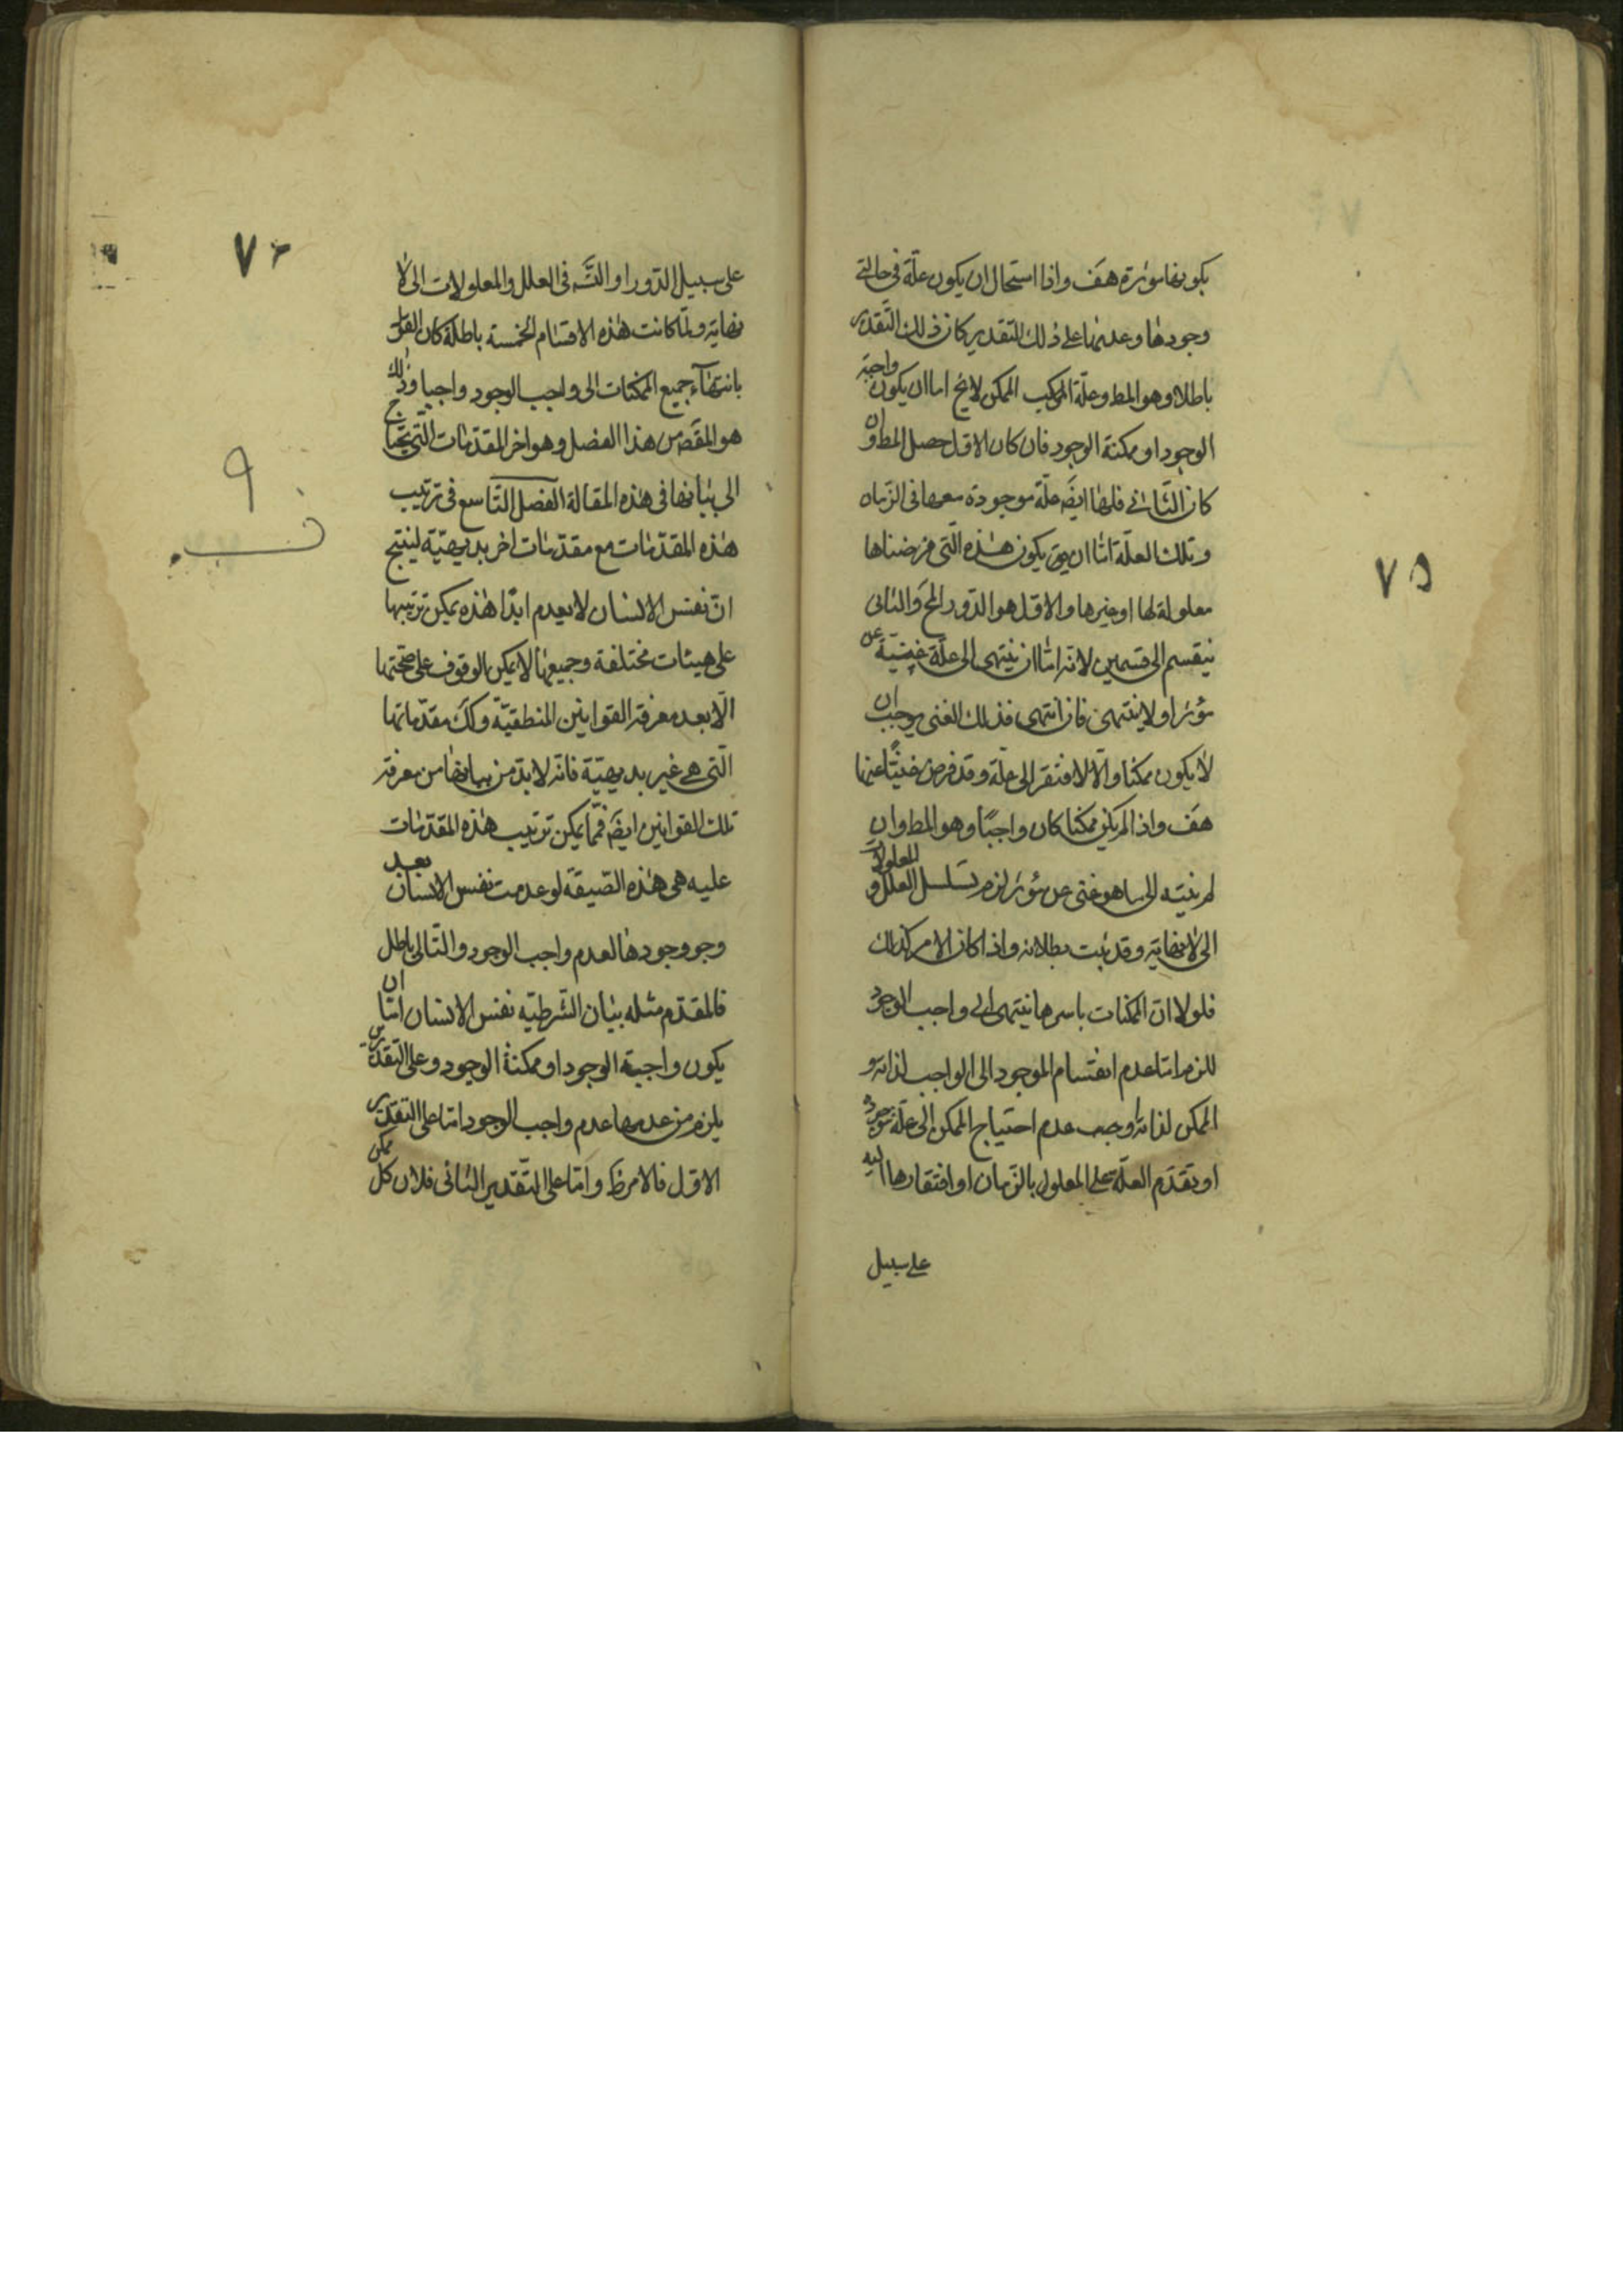 بكونها مؤثرة هف واذا استحال ان يكون علة فى حالتى
وجودها وعدمها على ذلك التقدير كان ذلك التقدير
باطلا وهو المط وعلة المركب الممكن لايخ اما ان يكون واجبة
الوجود او ممكنة الوجود فان كان الاول حصل المط وان
كان الثانى فلها ايضَ علة موجودة معها فى الزمان
وتلك العلة اما ان يكون هذه التى فرضناها
معلولة لها او غيرها والاول هو الدور المحَ والثانى
ينقسم الى قسمين لانه اما ان ينتهى الى علة غنية عن
مؤثر او لا ينتهى فان انتهى فذلك الغنى يوجب ان
لا يكون ممكنا والا لافتقر الى علة وقد فرض غنيًّا عنها
هف واذا لم يكن ممكنا كان واجبًا وهو المط وان
لم ينته الى ما هو غنى عن مؤثر لزم تسلسل العلل و المعلولات
الى لا نهاية وقد ثبت بطلانه واذا كان الامر كذلك
فلولا انّ الممكنات باسرها ينتهى الى واجب الوجود
للزم اما عدم انقسام الموجود الى الواجب لذاته و
الممكن لذاته او جب عدم احتياج الممكن الى علة موجودة
او تقدم العلة على المعلول بالزمان او افتقارها اليه
على سبيل
٧٥
على سبيل الدور او التسَ فى العلل والمعلولات الى لا
نهاية ولما كانت هذه الاقسام الخمسة باطلة كان القول
بانتهآء جميع الممكنات الى واجب الوجود واجبا وذلك
هو المقصَ من هذا الفصل وهو اخر المقدمات التى يحتاج
الى بيانها فى هذه المقالة الفصل التاسع فى ترتيب
هذه المقدمات مع مقدمات اخر بديهيّة لينتج
انّ نفس الانسان لا يعدم ابدًا هذه يمكن ترتيبها
على هيئات مختلفة وجميعها لا يمكن الوقوف على صحتها
الّا بعد معرفة القوانين المنطقيّة وكك مقدّماتها
التى هى غير بديهيّة فانه لابد من بيانها من معرفة
تلك القوانين ايضَ فمّا يمكن ترتيب هذه المقدّمات
عليه هى هذه الصّيغة لو عدمت نفس الانسان بعد
وجو وجودها لعدم واجب الوجود والتّالى باطل
فالمقدّم مثله بيان الشّرطيّه نفس الانسان امّا ان
يكون واجبة الوجود او ممكنة الوجود وعلى التقديرين
يلزم من عدمها عدم واجب الوجود امّا على التقدير
الاول فالامر ظَ وامّا على التقدير الثانى فلان كل ممكن
٧٦
٩